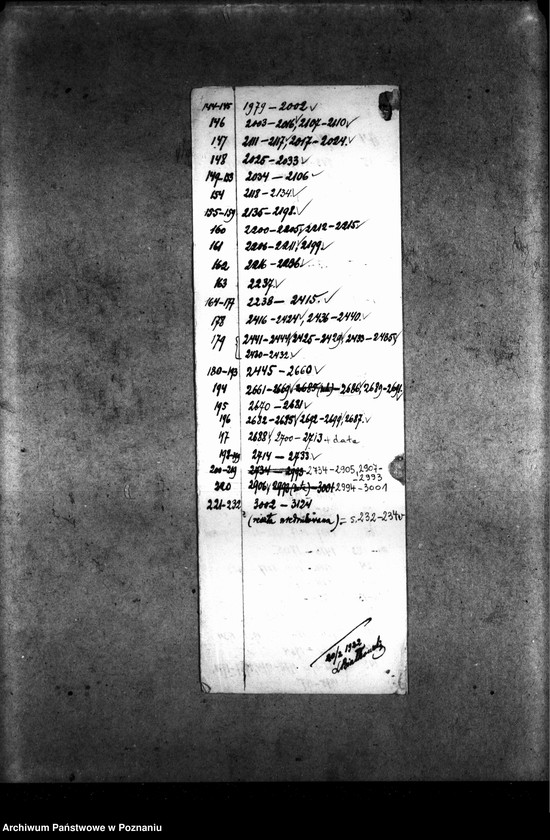 144-145 1979 – 2002 ✓
146 2003 – 2016 ✓, 2107 – 2110 ✓
147 2111 – 2117 ✓, 2017 – 2024 ✓
148 2025 – 2033 ✓
149-153 2034 – 2106 ✓
154 2118 – 2134 ✓
155-159 2135 – 2198 ✓
160 2200 – 2205 ✓, 2212 – 2215 ✓
161 2206 – 2211 ✓, 2199 ✓
162 2216 – 2236 ✓
163 2237 ✓
164-177 2238 – 2415 ✓
178 2416 – 2424 ✓, 2436 – 2440 ✓
179 2441 – 2444 ✓, 2425 – 2429 ✓, 2433 – 2435 ✓
2430 – 2432 ✓
180-193 2445 – 2660 ✓
194 2661 – 2669 ✓, 2686 ✓, 2689 – 2691 ✓
195 2670 – 2681 ✓
196 2682 – 2685 ✓, 2692 – 2699 ✓, 2687 ✓
197 2688 ✓, 2700 – 2713 + data
198-199 2714 – 2733 ✓
200-219 2734 – 2993 2734 – 2905, 2907 –
– 2993
220 2906, 2994 – 3001
221-232 3002 – 3124
= s. 232 – 234 ✓
20/2 1922
Archiwum Państwowe w Poznaniu